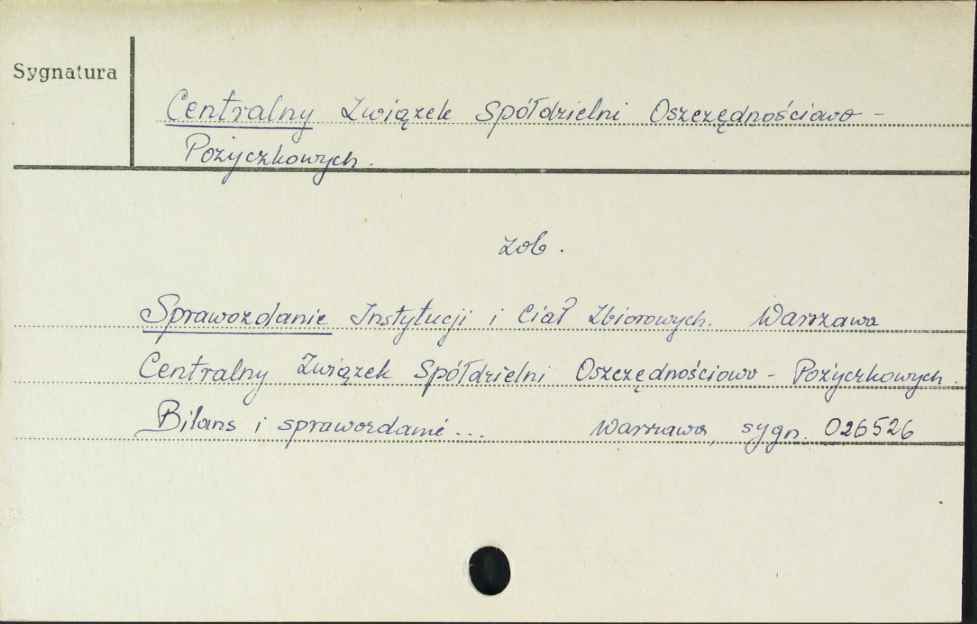 Sygnatura
Centralny Związek Spółdzielni Oszczędnościowo -
Pożyczkowych.
zob.
Sprawozdanie Instytucji i Ciał Zbiorowych. Warszawa
Centralny Związek Spółdzielni Oszczędnościowo - Pożyczkowych.
Bilans i sprawozdanie... Warszawa, sygn. 026526